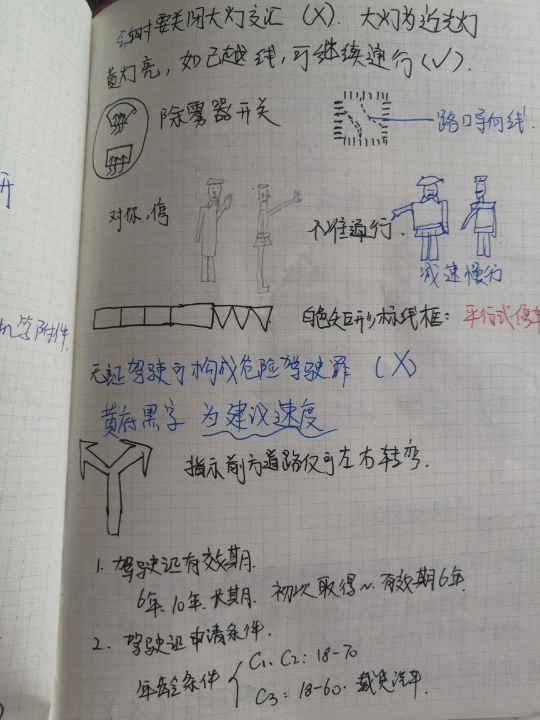 会车时要关闭大灯交汇（X）. 大灯为近光灯
黄灯亮，如已越线，可继续通行(√).
开
除雾器开关
路口导向线
对你，停
不准通行.
减速慢行
附件.
白色矩形标线框：平行式停车
无证驾驶可构成危险驾驶罪（X）
黄底黑字 为建议速度
指示前方道路仅可左右转弯.
1. 驾驶证有效期.
6年. 10年. 长期. 初次取得~. 有效期6年.
2. 驾驶证申请条件.
年龄条件
C1、C2：18-70
C3：18-60. 载货汽车.